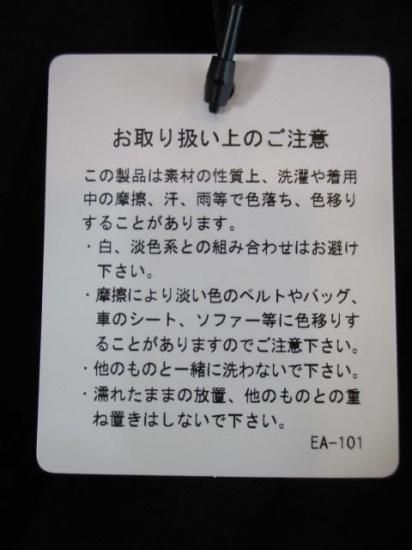 お取り扱い上のご注意
この製品は素材の性質上、洗濯や着用
中の摩擦、汗、雨等で色落ち、色移り
することがあります。
・白、淡色系との組み合わせはお避け
下さい。
・摩擦により淡い色のベルトやバッグ、
車のシート、ソファー等に色移りす
ることがありますのでご注意下さい。
・他のものと一緒に洗わないで下さい。
・濡れたままの放置、他のものとの重
ね置きはしないで下さい。
EA-101